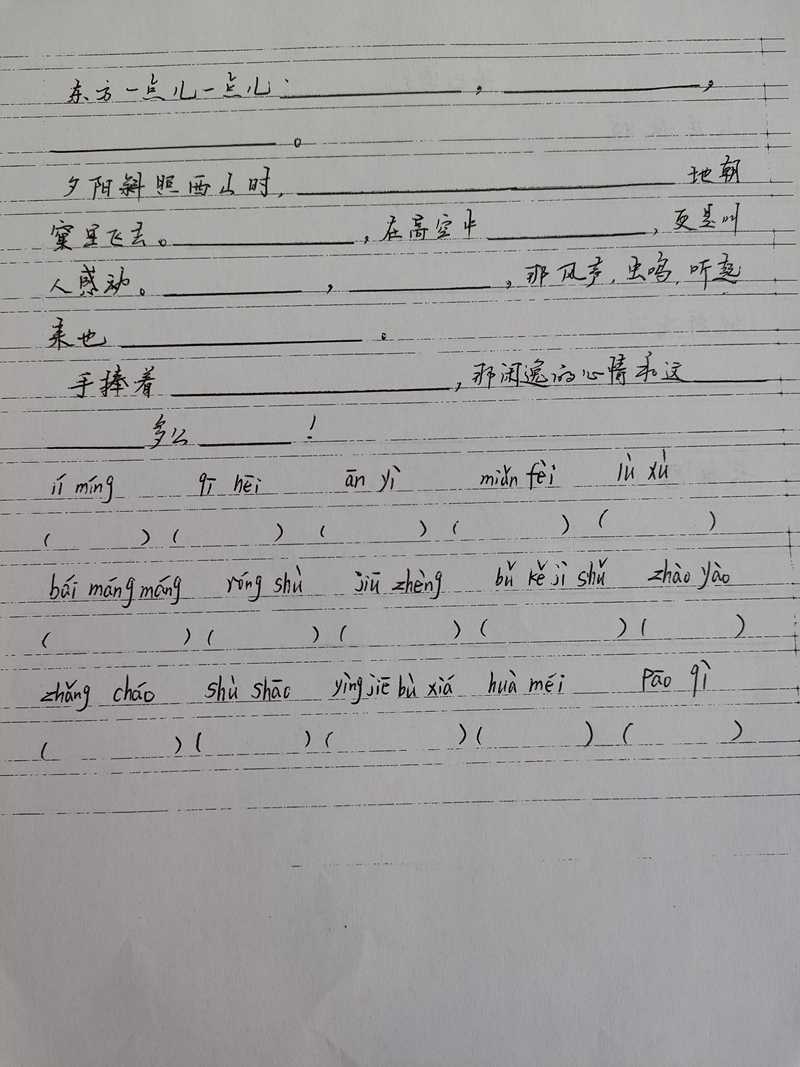 东方一点儿一点儿 ____________, ____________,
____________。
夕阳斜照西山时, ____________ 地朝
窠里飞去。____________, 在高空中 ____________, 更是叫
人感动。____________, ____________, 那风声, 虫鸣, 听起
来也 ____________。
手捧着 ____________, 那闲逸的心情和这 ______
______ 多么 ______ !
jí míng qī hēi ān yì miǎn fèi lù xù
( ) ( ) ( ) ( ) ( )
bái máng máng róng shù jiū zhèng bǔ kě jì shǔ zhào yào
( ) ( ) ( ) ( ) ( )
zhǎng cháo shù shāo yìng jiē bù xiá huà méi pāo qì
( ) ( ) ( ) ( ) ( )